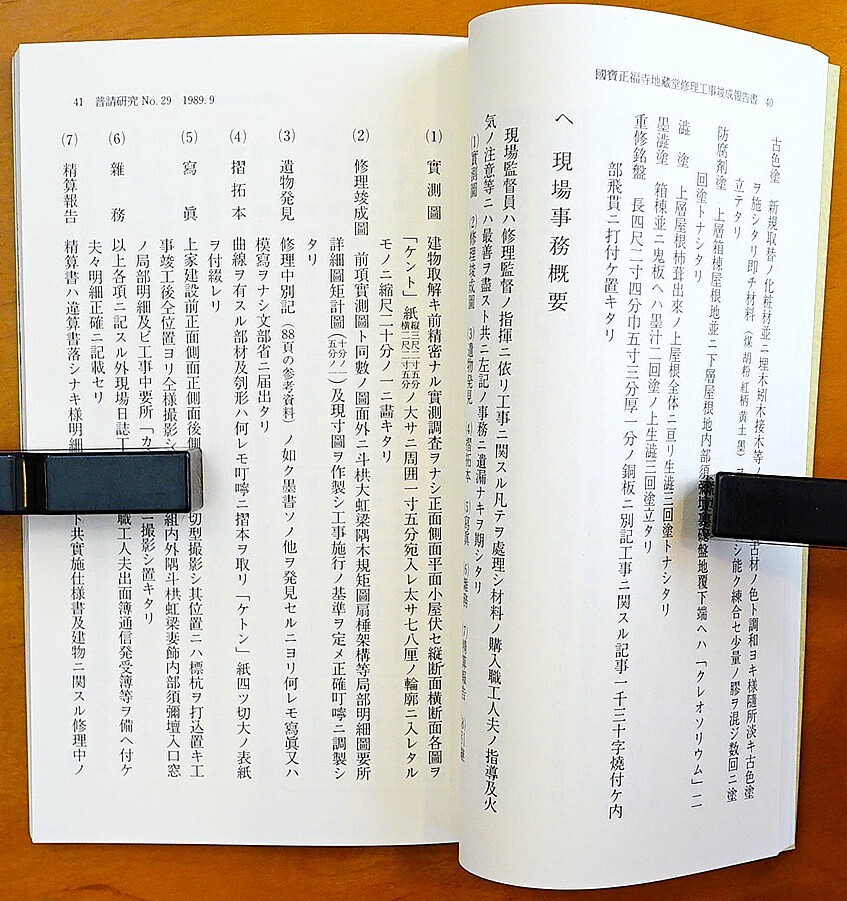 國寶正福寺地藏堂修理工事竣成報告書 40
古色塗 新規取替ノ化粧材並ニ埋木矧木接木等ノ 古材ノ色ト調和ヨキ樣隨所淡キ古色塗
ヲ施シタリ即チ材料（煤 胡粉 紅柄 黄土 墨） シ能ク練合セ少量ノ膠ヲ混ジ数回ニ塗
立テタリ
防腐劑塗 上層箱棟屋根地並ニ下層屋根地内部須彌壇裏礎盤地覆下端ヘハ「クレオソリウム」二
回塗トナシタリ
澁塗 上層屋根杮葺出來ノ上屋根全体ニ亘リ生澁三回塗トナシタリ
墨澁塗 箱棟並ニ鬼板ヘハ墨汁二回塗ノ上生澁三回塗立タリ
重修銘盤 長四尺二寸四分巾五寸三分厚一分ノ銅板ニ別記工事ニ関スル記事一千三十字燒付ケ内
部飛貫ニ打付ケ置キタリ
ヘ 現場事務概要
現場監督員ハ修理監督ノ指揮ニ依リ工事ニ関スル凡テヲ處理シ材料ノ購入職工人夫ノ指導及火
気ノ注意等ニハ最善ヲ盡スト共ニ左記ノ事務ニ遺漏ナキヲ期シタリ
(1) 實測圖 (2) 修理竣成圖 (3) 遺物発見 (4) 摺拓本 (5) 寫眞 (6) 雜務 (7) 精算報告
41 普請研究 No. 29 1989. 9
(1) 實測圖 建物取解キ前精密ナル實測調査ヲナシ正面側面平面小屋伏セ縦断面横断面各圖ヲ
「ケント」紙縦三尺二寸五分横二尺二寸五分ノ大サニ周囲一寸五分宛入レ太サ七八厘ノ輪廓ニ入レタル
モノニ縮尺二十分ノ一ニ畵キタリ
(2) 修理竣成圖 前項實測圖ト同數ノ圖面外ニ斗栱大虹梁隅木規矩圖扇棰架構等局部明細圖要所
詳細圖矩計圖（十分ノ一五分ノ一）及現寸圖ヲ作製シ工事施行ノ基準ヲ定メ正確叮嚀ニ調製シ
タリ
(3) 遺物発見 修理中別記（88頁の参考資料）ノ如ク墨書ソノ他ヲ発見セルニヨリ何レモ寫眞又ハ
模寫ヲナシ文部省ニ届出タリ
(4) 摺拓本 曲線ヲ有スル部材及刳形ハ何レモ叮嚀ニ摺本ヲ取リ「ケトン」紙四ツ切大ノ表紙
ヲ付綴レリ
(5) 寫眞 上家建設前正面側面正側面後側 切型撮影シ其位置ニハ標杭ヲ打込置キ工
事竣工後仝位置ヨリ仝樣撮影シ 組内外隅斗栱虹梁妻飾内部須彌壇入口窓
ノ局部明細及ビ工事中要所「カ ニ撮影シ置キタリ
(6) 雜務 以上各項ニ記スル外現場日誌工 職工人夫出面簿通信発受簿等ヲ備ヘ付ケ
夫々明細正確ニ記載セリ
(7) 精算報告 精算書ハ違算書落シナキ樣明細 ト共実施仕様書及建物ニ関スル修理中ノ